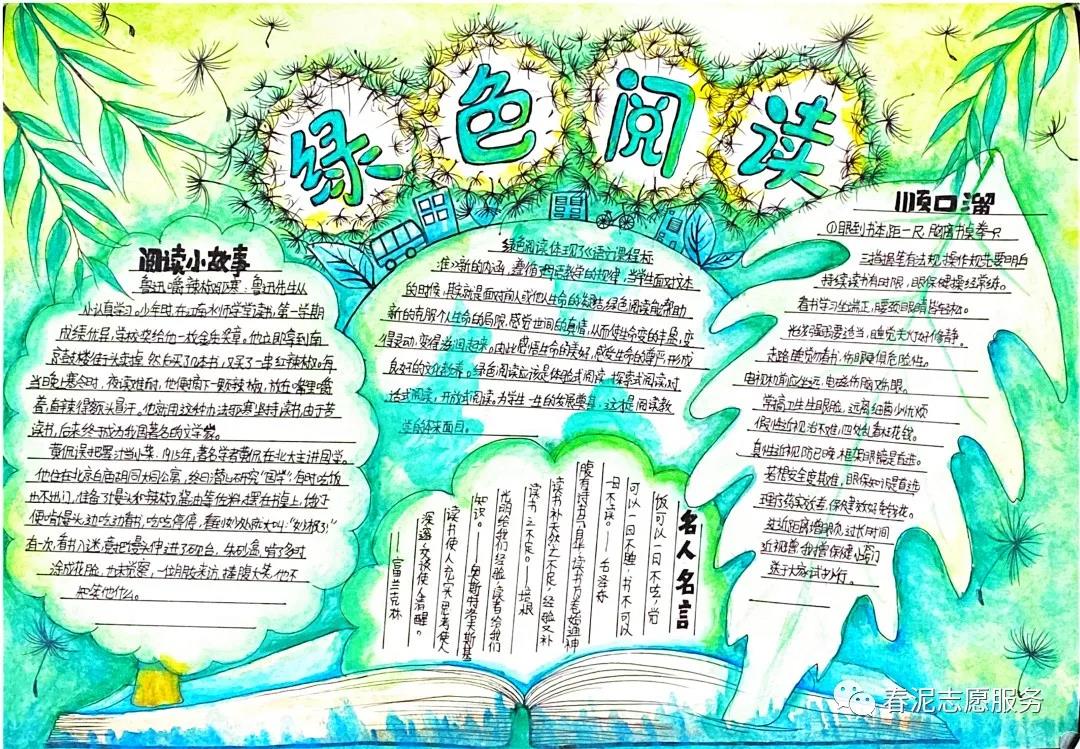 绿色阅读
阅读小故事
鲁迅嚼辣椒驱寒:鲁迅先生从
小认真学习。少年时,在江南水师学堂读书,第一学期
成绩优异,学校奖给他一枚金质奖章。他立即拿到南
京鼓楼街头卖掉,然后买了几本书,又买了一串红辣椒。每
当晚上寒冷时,夜读难耐,他便摘下一颗辣椒,放在嘴里嚼
着,直辣得额头冒汗。他就用这种办法驱寒坚持读书。由于苦
读书,后来终于成为我国著名的文学家。
黄侃误把墨汁当小菜:1915年,著名学者黄侃在北大主讲国学。
他住在北京白庙胡同大同公寓,终日潜心研究"国学",有时吃饭
也不出门,准备了馒头和辣椒、酱油等佐料,摆在书桌上,饿了
便啃馒头,边吃边看书,吃吃停停,看到妙处就大叫:"妙极了!"
有一次,看书入迷,竟把馒头伸进了砚台、朱砂盒,啃了多时
涂成花脸,也未觉察,一位朋友来访,捧腹大笑,他不
知笑他什么。
绿色阅读,体现了《语文课程标
准》新的内涵,遵循
的时候,其实就是面对前人或他人生命的
新的克服个人生命的局限,感觉世间的真情,从而使生命变的丰盈,变
得灵动,变得滋润起来。由此感悟生命的美好,感受生命的尊严,形成
良好的文化
话式阅读,开放式阅读。为学生一生的发展奠基,这才是阅读教
学的本来面目。
名人名言
饭可以一日不吃,觉
可以一日不睡,书不可以
一日不读。——毛泽东
腹有诗书气自华,读书万卷始通神
读书补天然之不足,经验又补
读书之不足。——培根
光明给我们经验,读书给我们
知识。——奥斯特洛夫斯基
读书使人充实,思考使人
深邃,交谈使人清醒。
——富兰克林
顺口溜
①眼到书本距一尺,胸离书桌拳一只
三指握笔有方规,操作规先要明白
持续读书有时限,眼保健操经常练。
看书学习坐端正,腰颈眼睛皆轻松。
光线强弱要适当,睡觉关灯好修静。
走路睡觉勿看书,伤眼睡俱危险性。
电视机前应坐远,电磁伤脑又伤眼。
学搞卫生生眼脸,远离细菌少忧烦
假性近视治不难,四处乱看枉花钱。
真性近视防已晚,框架眼镜是首选。
若想安全度其难,眼保知识是首选
理疗药疗效考,保健效好免转花。
处近距离指眼次,过长时间
近视营我撸保健小窍门
送于大家试
春泥志愿服务